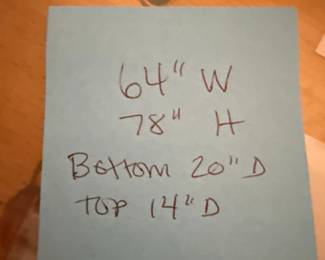 64" W
78" H
Bottom 20" D
top 14" D